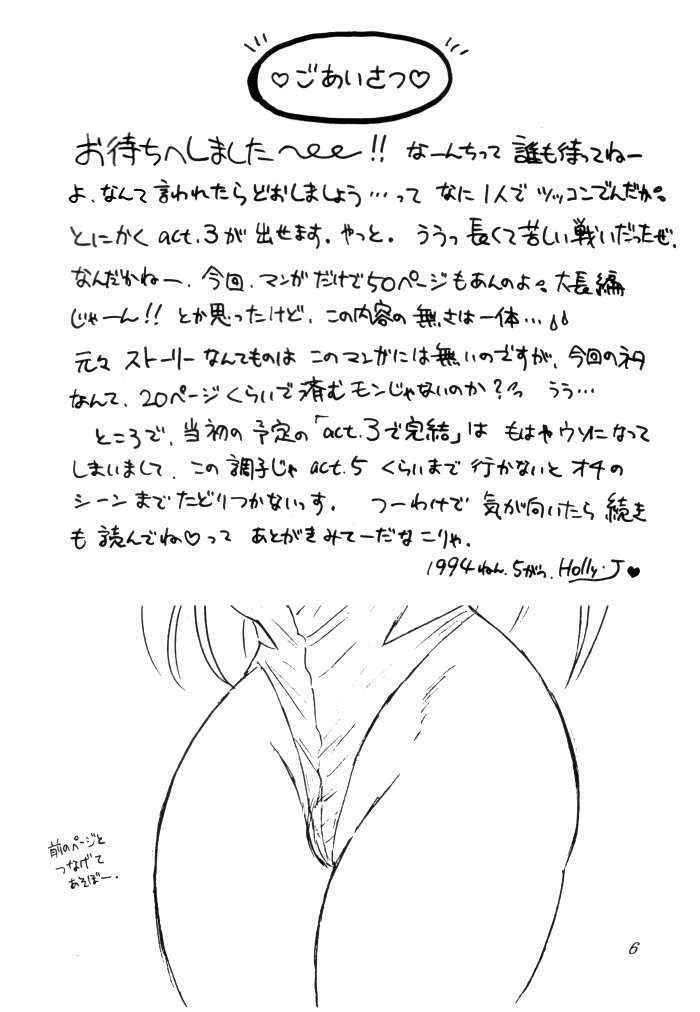 ♡ごあいさつ♡
お待ちへしました〜!! なーんちって 誰も待ってねー
よ、なんて言われたらどおしましょう…って なに1人でツッコンでんだか。
とにかく act.3が 出せます。やっと。 ううっ 長くて苦しい戦いだったぜ。
なんだかねー、今回、マンガだけで50ページもあんのよ。大長編
じゃーん!! とか思ったけど、この内容の 無さは一体…
元々 ストーリーなんてものは このマンガには無いのですが、今回のネタ
なんて、20ページくらいで済むモンじゃないのか?っ うう…
ところで、当初の予定の「act.3で完結」は もはやウソになって
しまいまして、この調子じゃ act.5 くらいまで行かないと オチの
シーンまでたどりつかないっす。 つーわけで 気が向いたら 続き
も 読んでね♡って あとがきみてーだな こりゃ。
1994ねん.5がつ. Holly・J♥
前のページと
つなげて
あそぼー.
6